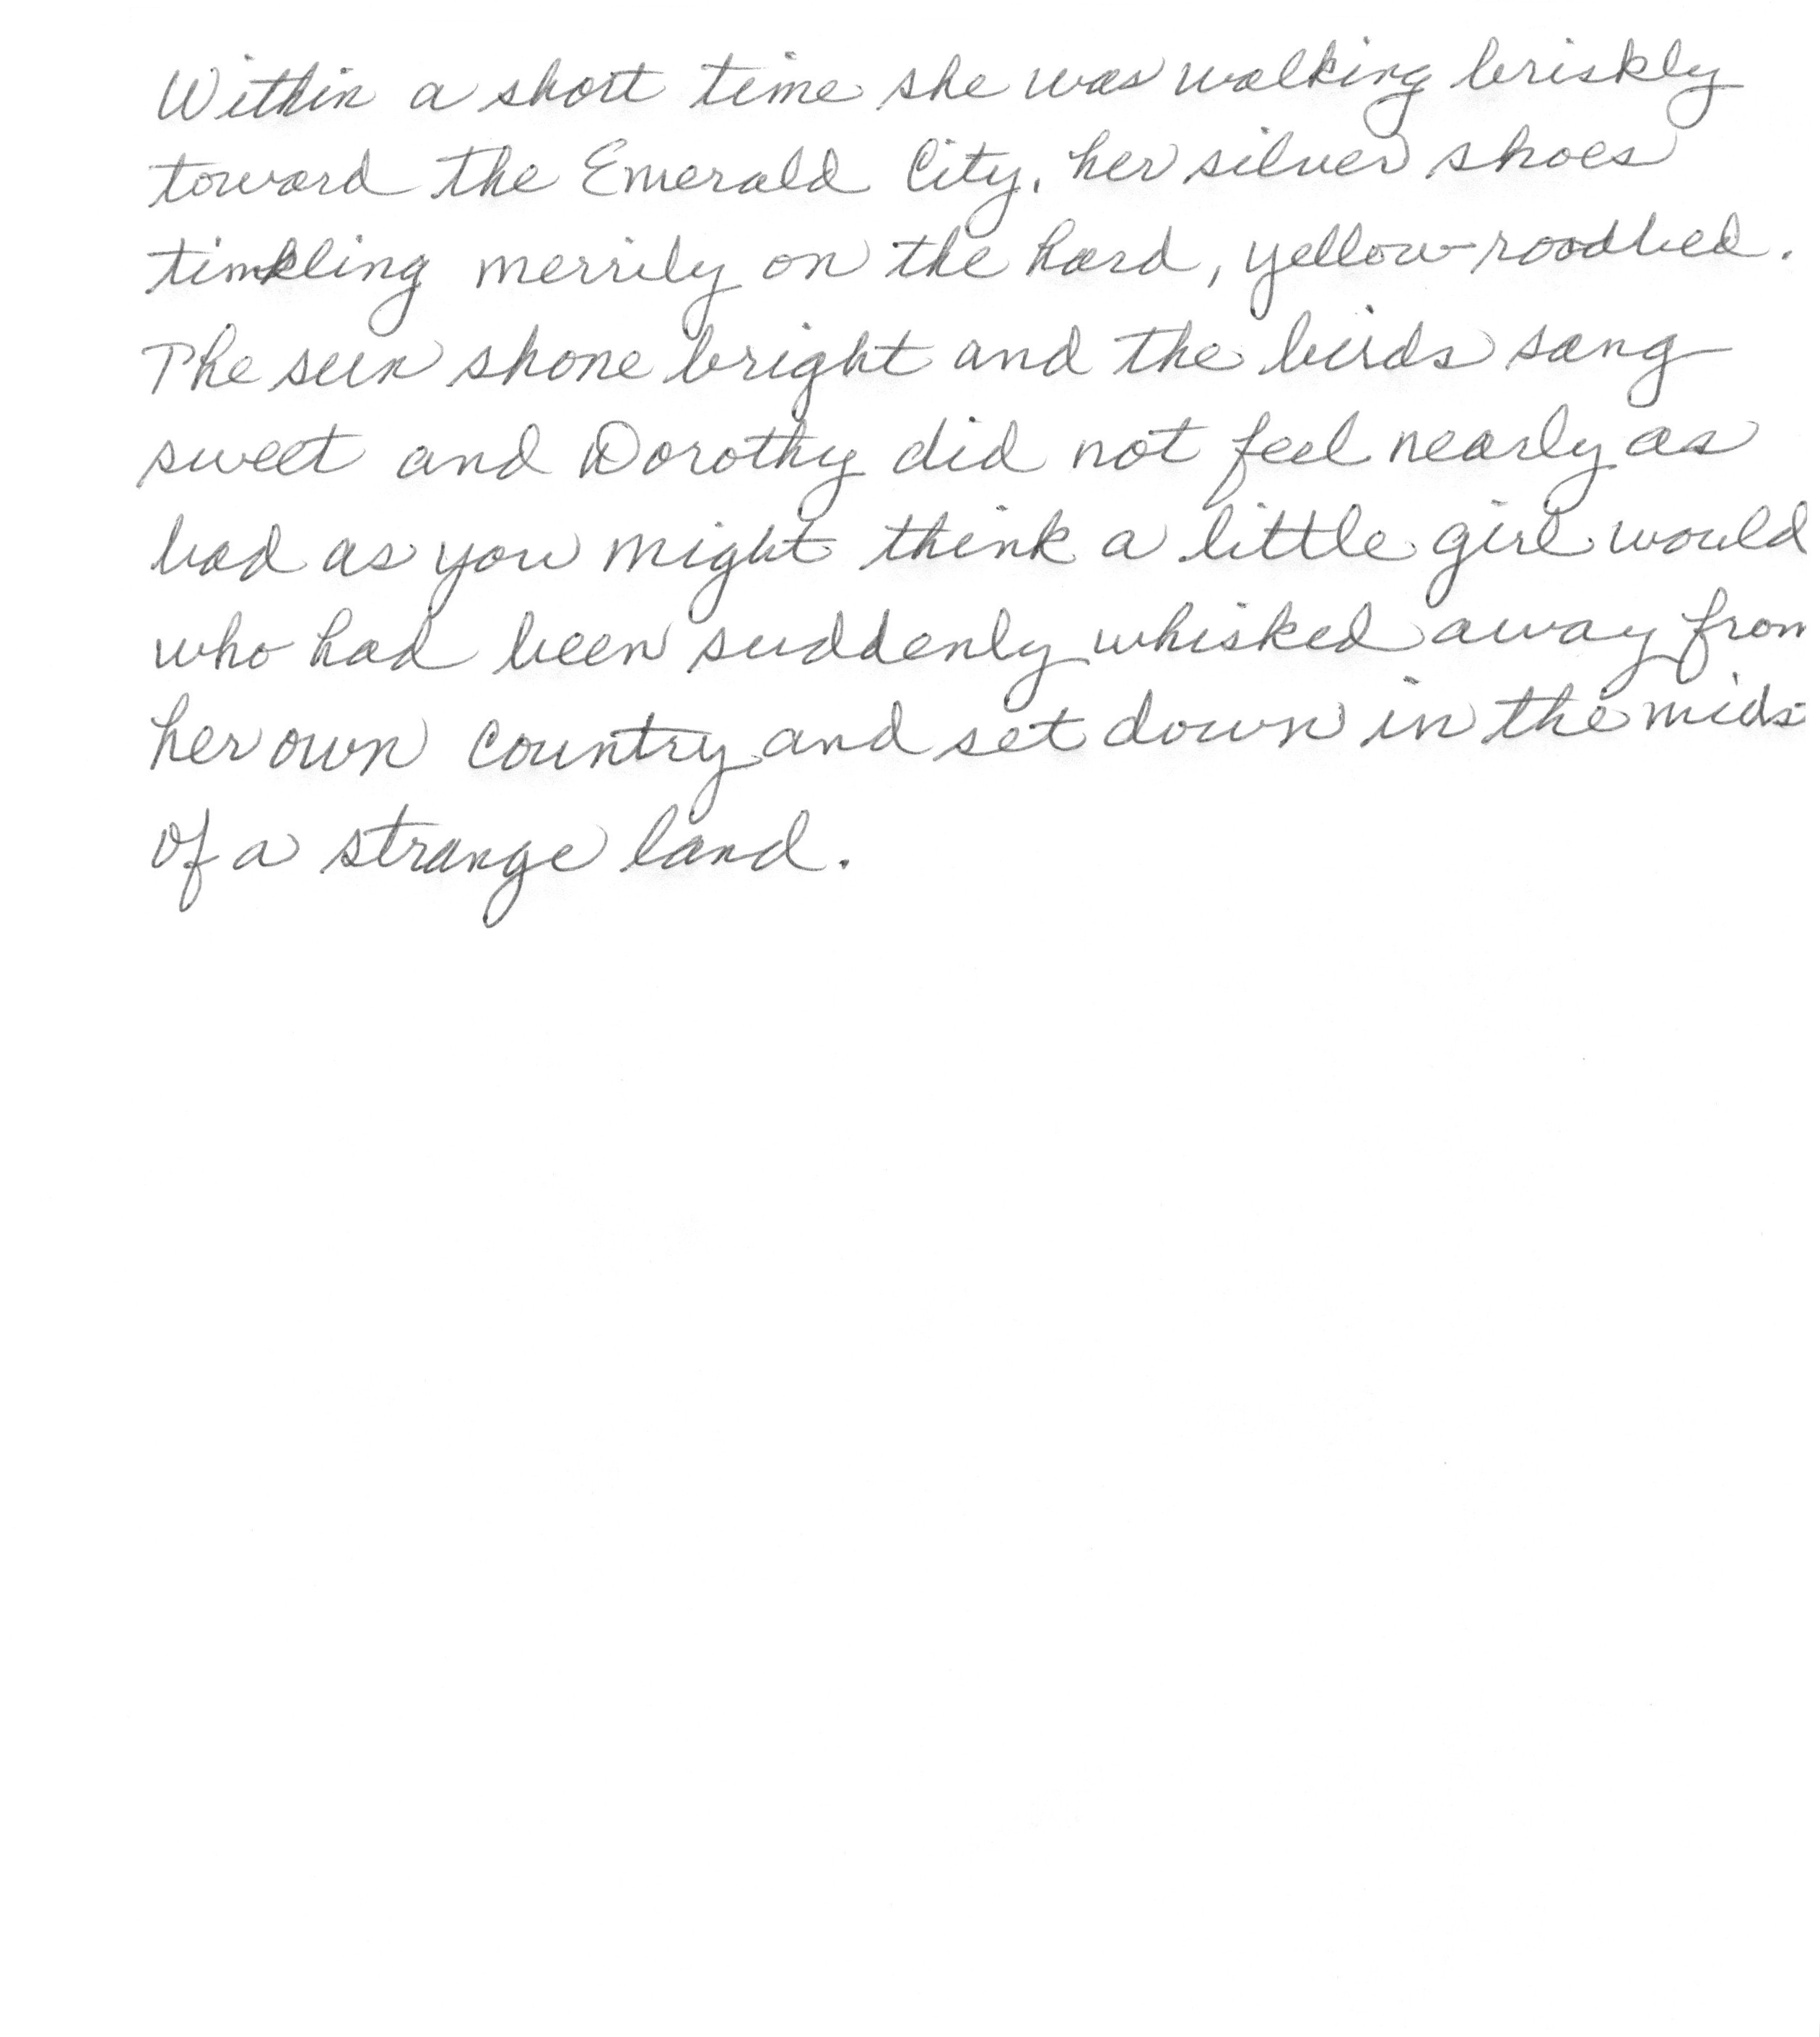 Within a short time she was walking briskly
toward the Emerald City, her silver shoes
tinkling merrily on the hard, yellow roadbed.
The sun shone bright and the birds sang
sweet and Dorothy did not feel nearly as
bad as you might think a little girl would
who had been suddenly whisked away from
her own country and set down in the mids
of a strange land.